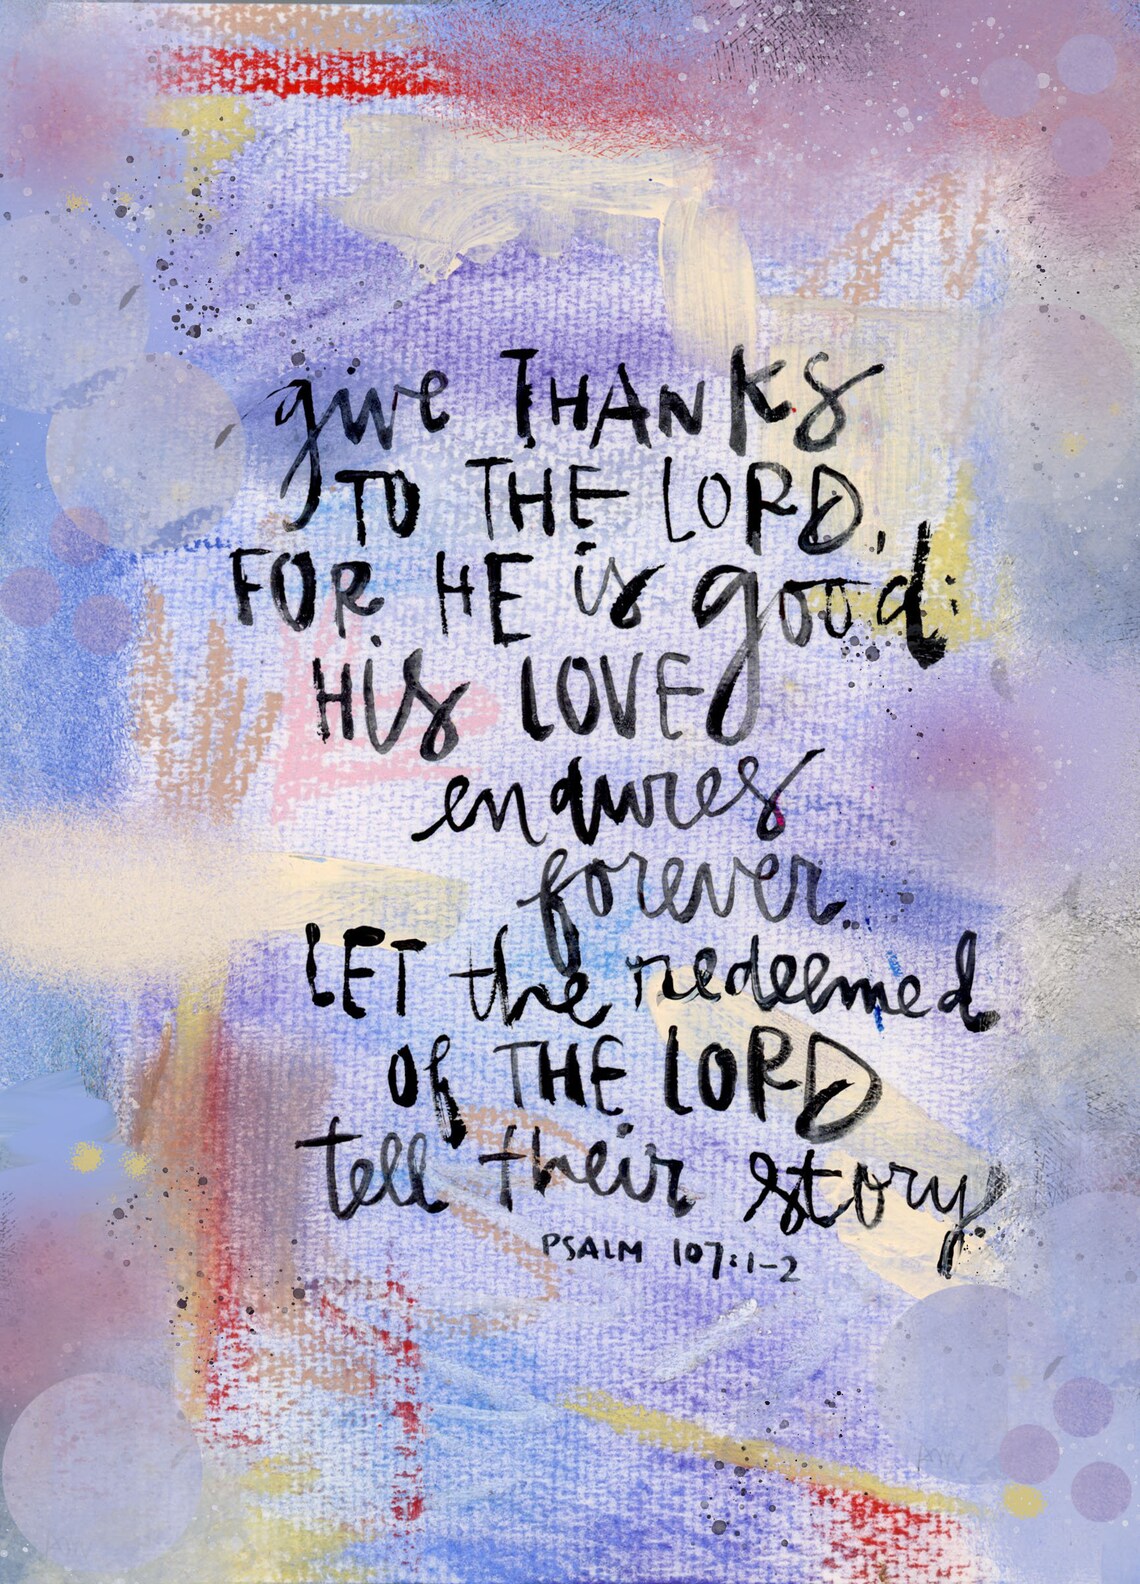 give THANKS
TO THE LORD,
FOR HE is good:
His LOVE
endures
forever.
LET the redeemed
of THE LORD
tell their story.
PSALM 107:1-2